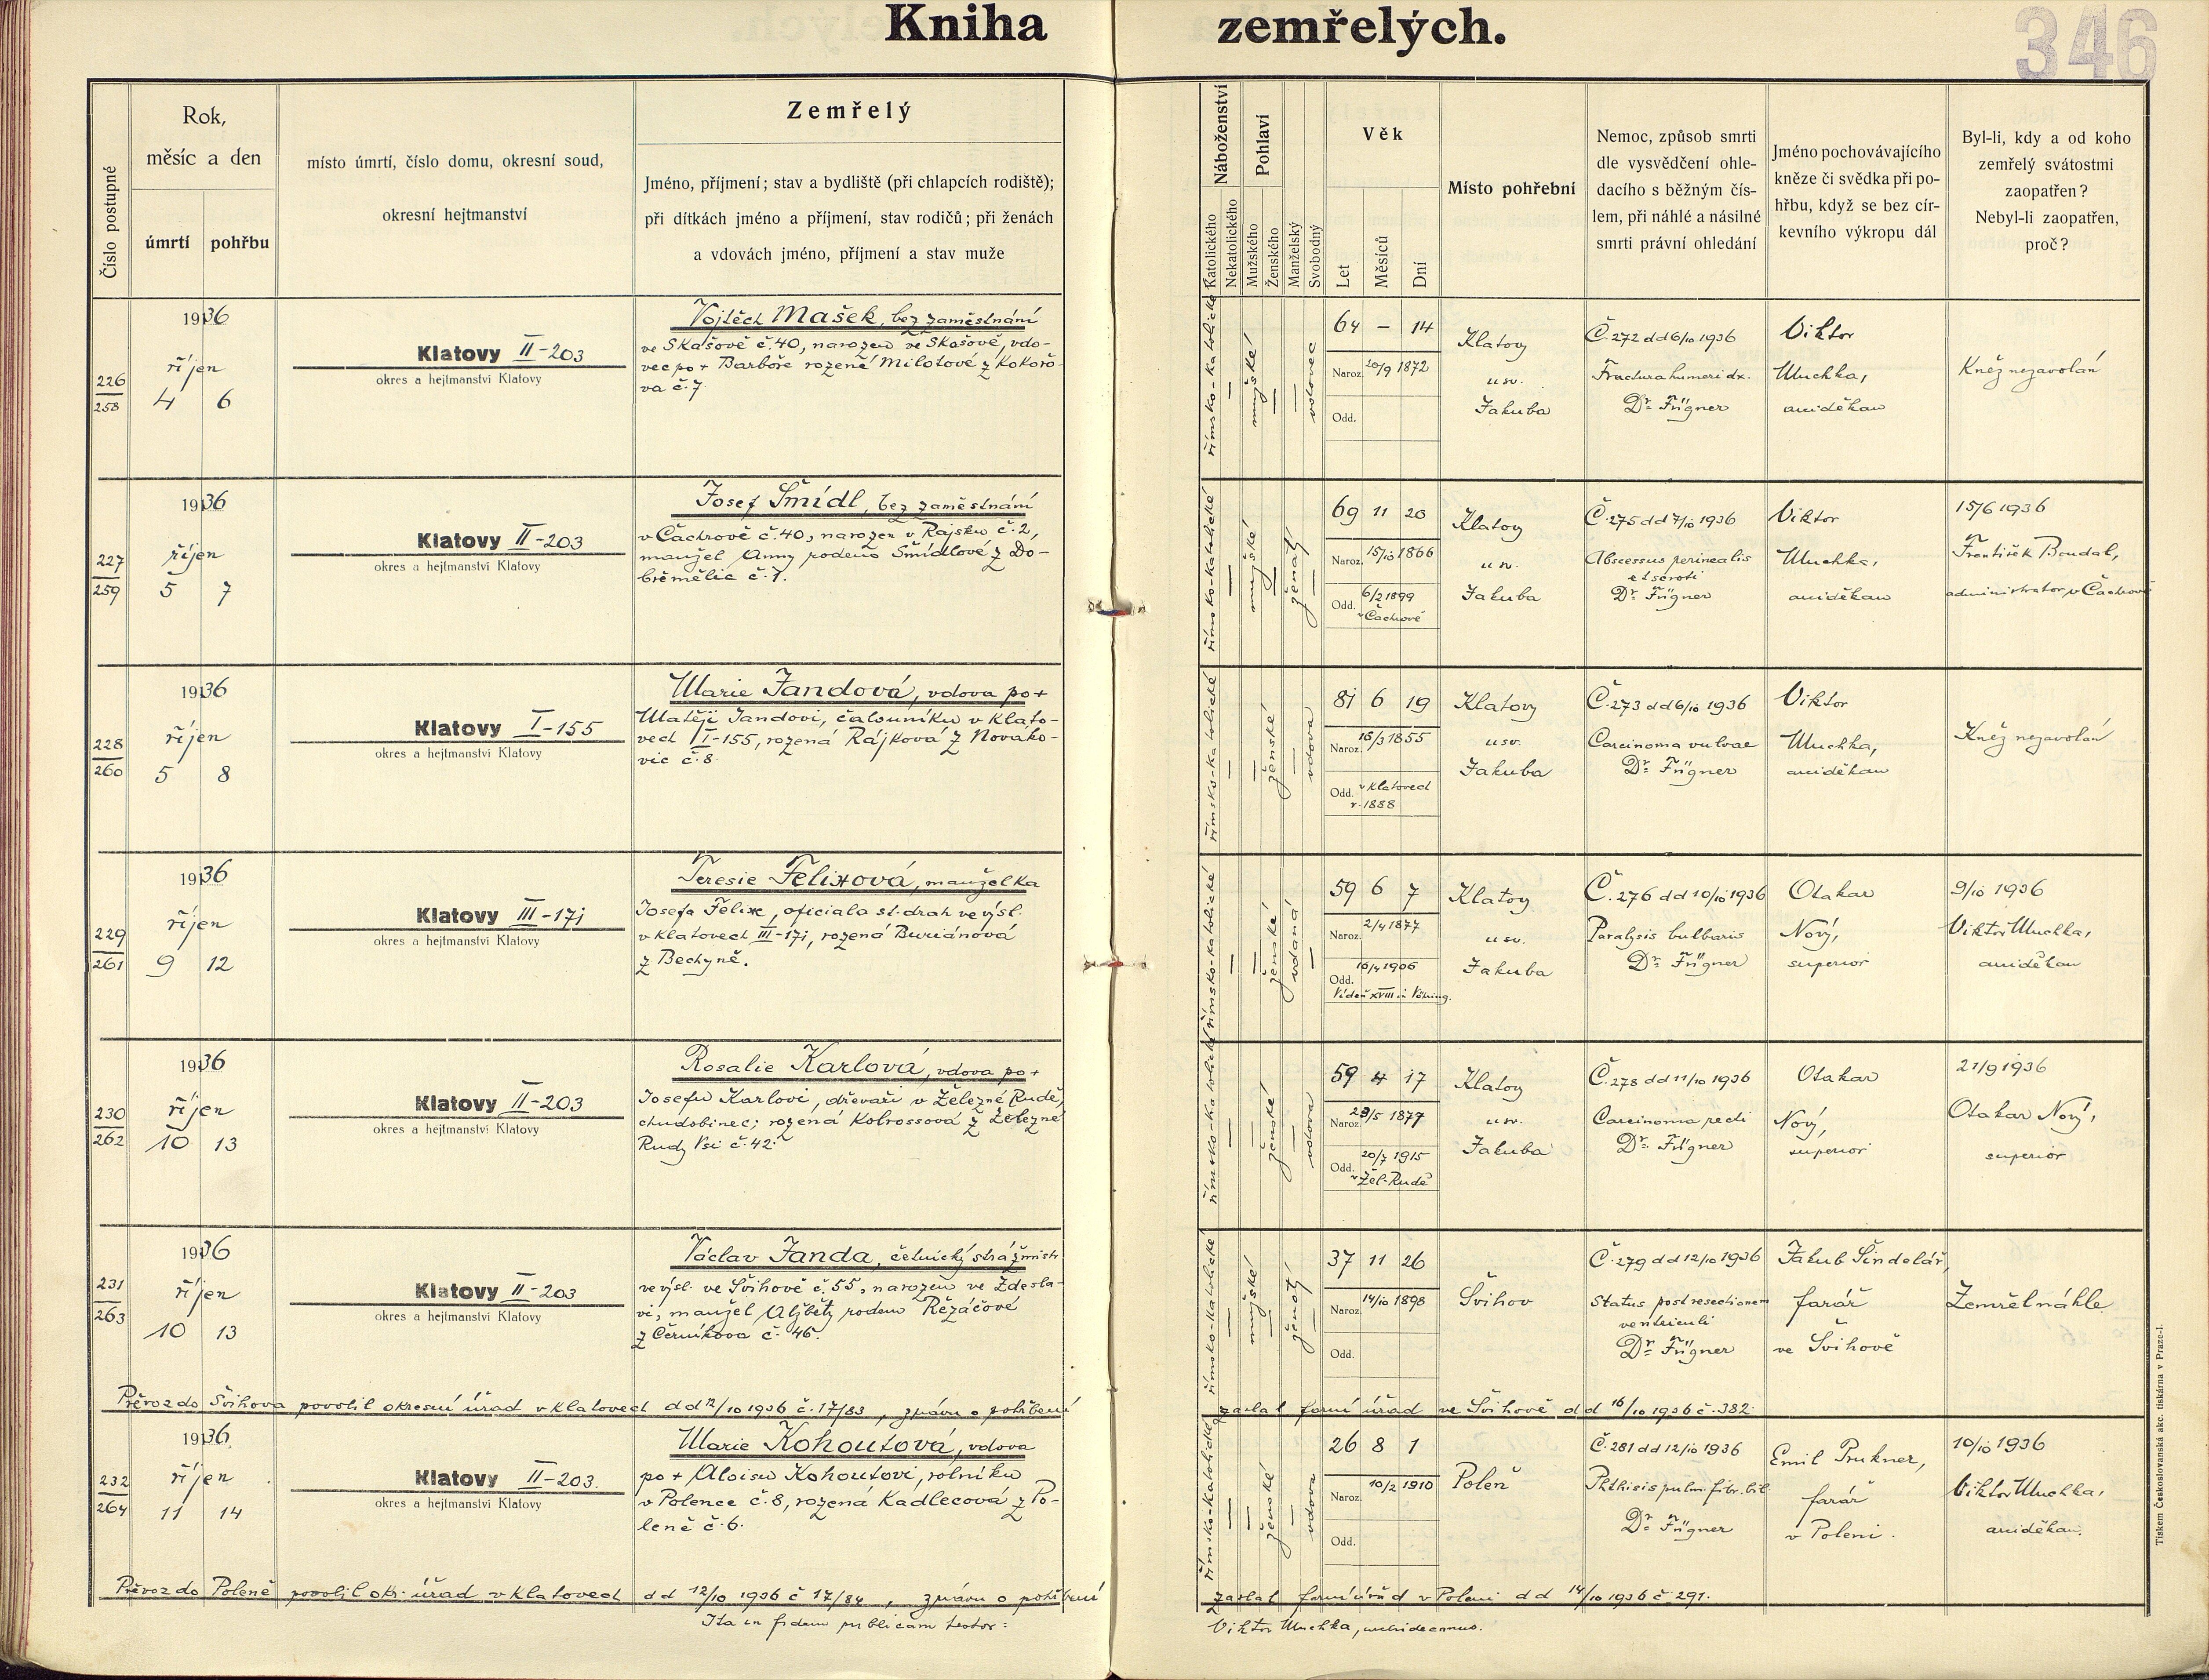 Kniha zemřelých.
346
Číslo postupné
Rok,
měsíc a den
úmrtí
pohřbu
místo úmrtí, číslo domu, okresní soud,
okresní hejtmanství
Zemřelý
Jméno, příjmení; stav a bydliště (při chlapcích rodiště);
při dítkách jméno a příjmení, stav rodičů; při ženách
a vdovách jméno, příjmení a stav muže
Náboženství
Katolického
Nekatolického
Pohlaví
Mužského
Ženského
Manželský
Svobodný
Věk
Let
Měsíců
Dní
Místo pohřební
Nemoc, způsob smrti
dle vysvědčení ohle-
dacího s běžným čís-
lem, při náhlé a násilné
smrti právní ohledání
Jméno pochovávajícího
kněze či svědka při po-
hřbu, když se bez cír-
kevního výkropu dál
Byl-li, kdy a od koho
zemřelý svátostmi
zaopatřen?
Nebyl-li zaopatřen,
proč?
226
258
1936
říjen
4 6
Klatovy II-203
okres a hejtmanství Klatovy
Vojtěch Mašek, bez zaměstnání
ve Skašově č.40, narozen ve Skašově, vdo-
vec po + Barboře rozené Milotové z Kokořo-
va č.7
římsko-katolické
—
mužské
—
—
vdovec
64 — 14
Naroz. 20/9 1872
Odd.
Klatovy
u sv.
Jakuba
Č.272 dd 6/10 1936
Fractura humeri dx.
Dr. Fügner
Viktor
Muchka,
arciděkan
Kněz nezavolán
227
259
1936
říjen
5 7
Klatovy II-203
okres a hejtmanství Klatovy
Josef Šmídl, bez zaměstnání
v Čachrově č.40, narozen v Rajsku č.2,
manžel Anny rodem Šmídlové z Do-
břemělic č.7.
římsko-katolické
—
mužské
—
ženatý
—
69 11 20
Naroz. 15/10 1866
Odd. 6/2 1899
v Čachrově
Klatovy
u sv.
Jakuba
Č.275 dd 7/10 1936
Abscessus perinealis
et scroti
Dr. Fügner
Viktor
Muchka,
arciděkan
15/6 1936
František Boudal,
administrator v Čachrově
228
260
1936
říjen
5 8
Klatovy I-155
okres a hejtmanství Klatovy
Marie Jandová, vdova po +
Matěji Jandovi, čalouníku v Klato-
vech I-155, rozená Rájková z Nováko-
vic č.8.
římsko-katolické
—
—
ženské
—
vdova
81 6 19
Naroz. 16/3 1855
Odd. v Klatovech
r. 1888
Klatovy
u sv.
Jakuba
Č.273 dd 6/10 1936
Carcinoma vulvae
Dr. Fügner
Viktor
Muchka,
arciděkan
Kněz nezavolán
229
261
1936
říjen
9 12
Klatovy III-171
okres a hejtmanství Klatovy
Teresie Felixová, manželka
Josefa Felixe, oficiala st. drah ve výsl.
v Klatovech III-171, rozená Buriánová
z Bechyně.
římsko-katolické
—
—
ženské
vdaná
—
59 6 7
Naroz. 2/4 1877
Odd. 16/4 1906
Vídeň XVIII Währing.
Klatovy
u sv.
Jakuba
Č.276 dd 10/10 1936
Paralysis bulbaris
Dr. Fügner
Otakar
Nový,
superior
9/10 1936
Viktor Muchka,
arciděkan
230
262
1936
říjen
10 13
Klatovy II-203
okres a hejtmanství Klatovy
Rosalie Karlová, vdova po +
Josefu Karlovi, dřevaři v Železné Rudě,
chudobinec; rozená Kolrossová z Železné
Rudy Vsi č.42
římsko-katolické
—
—
ženské
—
vdova
59 4 17
Naroz. 23/5 1877
Odd. 20/7 1915
v Žel. Rudě
Klatovy
u sv.
Jakuba
Č.278 dd 11/10 1936
Carcinoma recti
Dr. Fügner
Otakar
Nový,
superior
21/9 1936
Otakar Nový,
superior
231
263
1936
říjen
10 13
Klatovy II-203
okres a hejtmanství Klatovy
Václav Janda, četnický strážmistr
ve výsl. ve Švihově č.55, narozen ve Zdesla-
vi, manžel Alžběty rodem Řezáčové
z Černíkova č. 46.
římsko-katolické
—
mužské
—
ženatý
—
37 11 26
Naroz. 14/10 1898
Odd.
Švihov
Č.279 dd 12/10 1936
Status post resectionem
ventriculi
Dr. Fügner
Jakub Šindelář,
farář
ve Švihově
Zemřel náhle
Převoz do Švihova povolil okresní úřad v Klatovech dd 12/10 1936 č.17/83, zprávu o pohřbení
zaslal farní úřad ve Švihově dd 16/10 1936 č.382.
232
264
1936
říjen
11 14
Klatovy II-203.
okres a hejtmanství Klatovy
Marie Kohoutová, vdova
po + Aloisu Kohoutovi, rolníku
v Polence č.8, rozená Kadlecová z Po-
leně č.6.
římsko-katolické
—
—
ženské
—
vdova
26 8 1
Naroz. 10/2 1910
Odd.
Poleň
Č.281 dd 12/10 1936
Phthisis pulm. fibr. bil
Dr. Fügner
Emil Prukner,
farář
v Poleni.
10/10 1936
Viktor Muchka,
arciděkan.
Převoz do Poleně povolil okr. úřad v Klatovech dd 12/10 1936 č 17/84, zprávu o pohřbení
zaslal farní úřad v Poleni dd 14/10 1936 č.291.
Ita in fidem publicam testor:
Viktor Muchka, archidecanus.
Tiskem Českoslovanská akc. tiskárna v Praze-I.